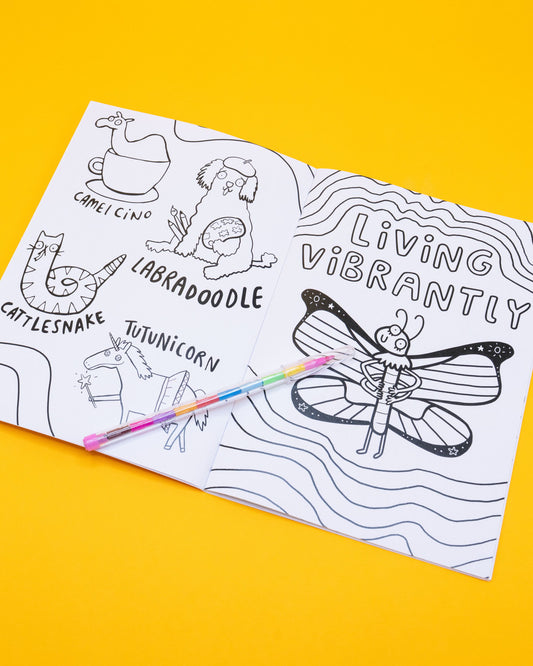 CAMELCINO
LABRADOODLE
CATTLESNAKE
TUTUNiCORN
LiViNG
ViBRANTLY